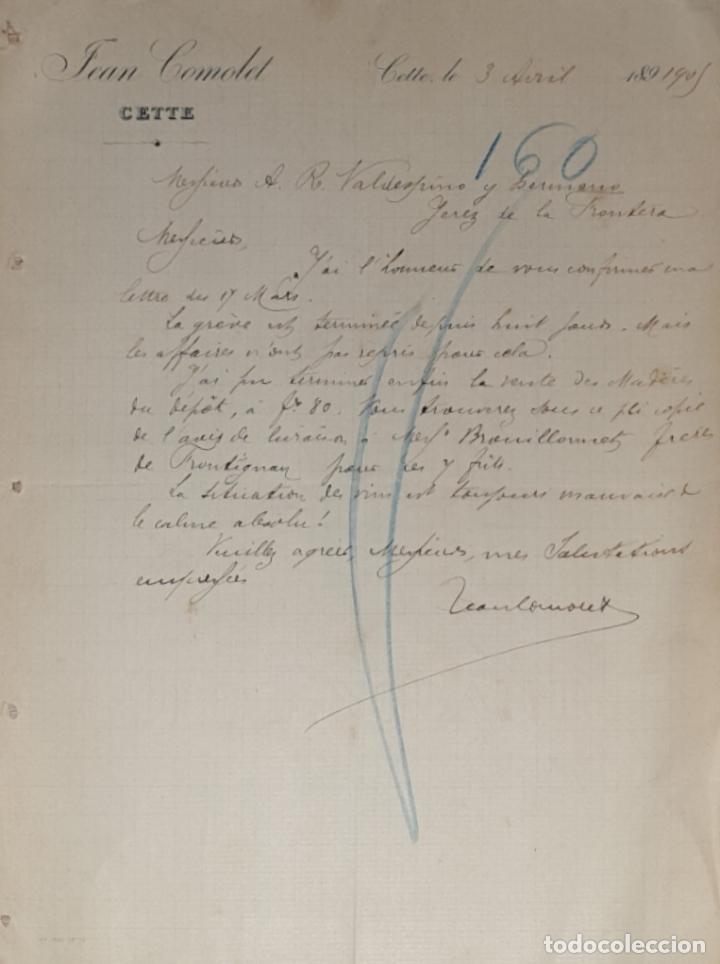 Jean Comolet
CETTE
Cette, le 3 Avril 1891905
160
Messieurs A. R. Valdespino y Hermano
Jerez de la Frontera
Messieurs,
J'ai l'honneur de vous confirmer ma
lettre du 17 Mars.
La grève est terminée depuis huit jours. Mais
les affaires n'ont pas repris pour cela.
J'ai pu terminer enfin la vente des Madères
du dépôt, à frs 80. Vous trouverez sous ce pli copie
de l'avis de livraison à Messrs Brouillonnet frères
de Frontignan pour ces 7 fûts.
La situation des vins est toujours mauvaise &
le calme absolu!
Veuillez agréer, Messieurs, mes Salutations
empressées
Jean Comolet
todocoleccion.net